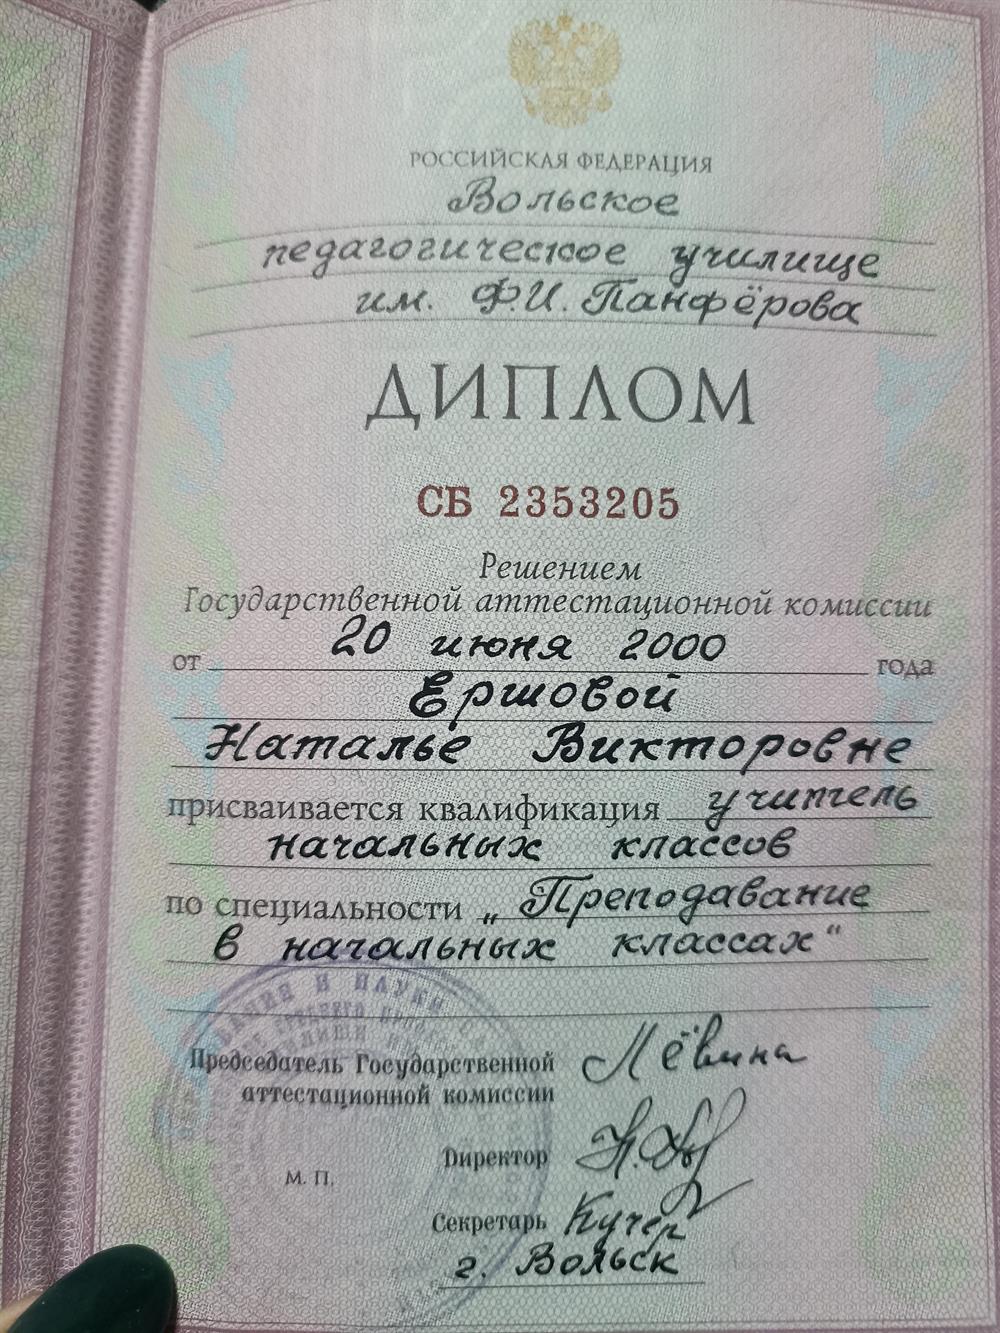 РОССИЙСКАЯ ФЕДЕРАЦИЯ
Вольское
педагогическое училище
им. Ф.И. Панфёрова
ДИПЛОМ
СБ 2353205
Решением
Государственной аттестационной комиссии
от 20 июня 2000 года
Ершовой
Наталье Викторовне
присваивается квалификация учитель
начальных классов
по специальности „Преподавание
в начальных классах“
Председатель Государственной Лёвина
аттестационной комиссии
Директор
М. П.
Секретарь Кучер
г. Вольск
И НАУКИ